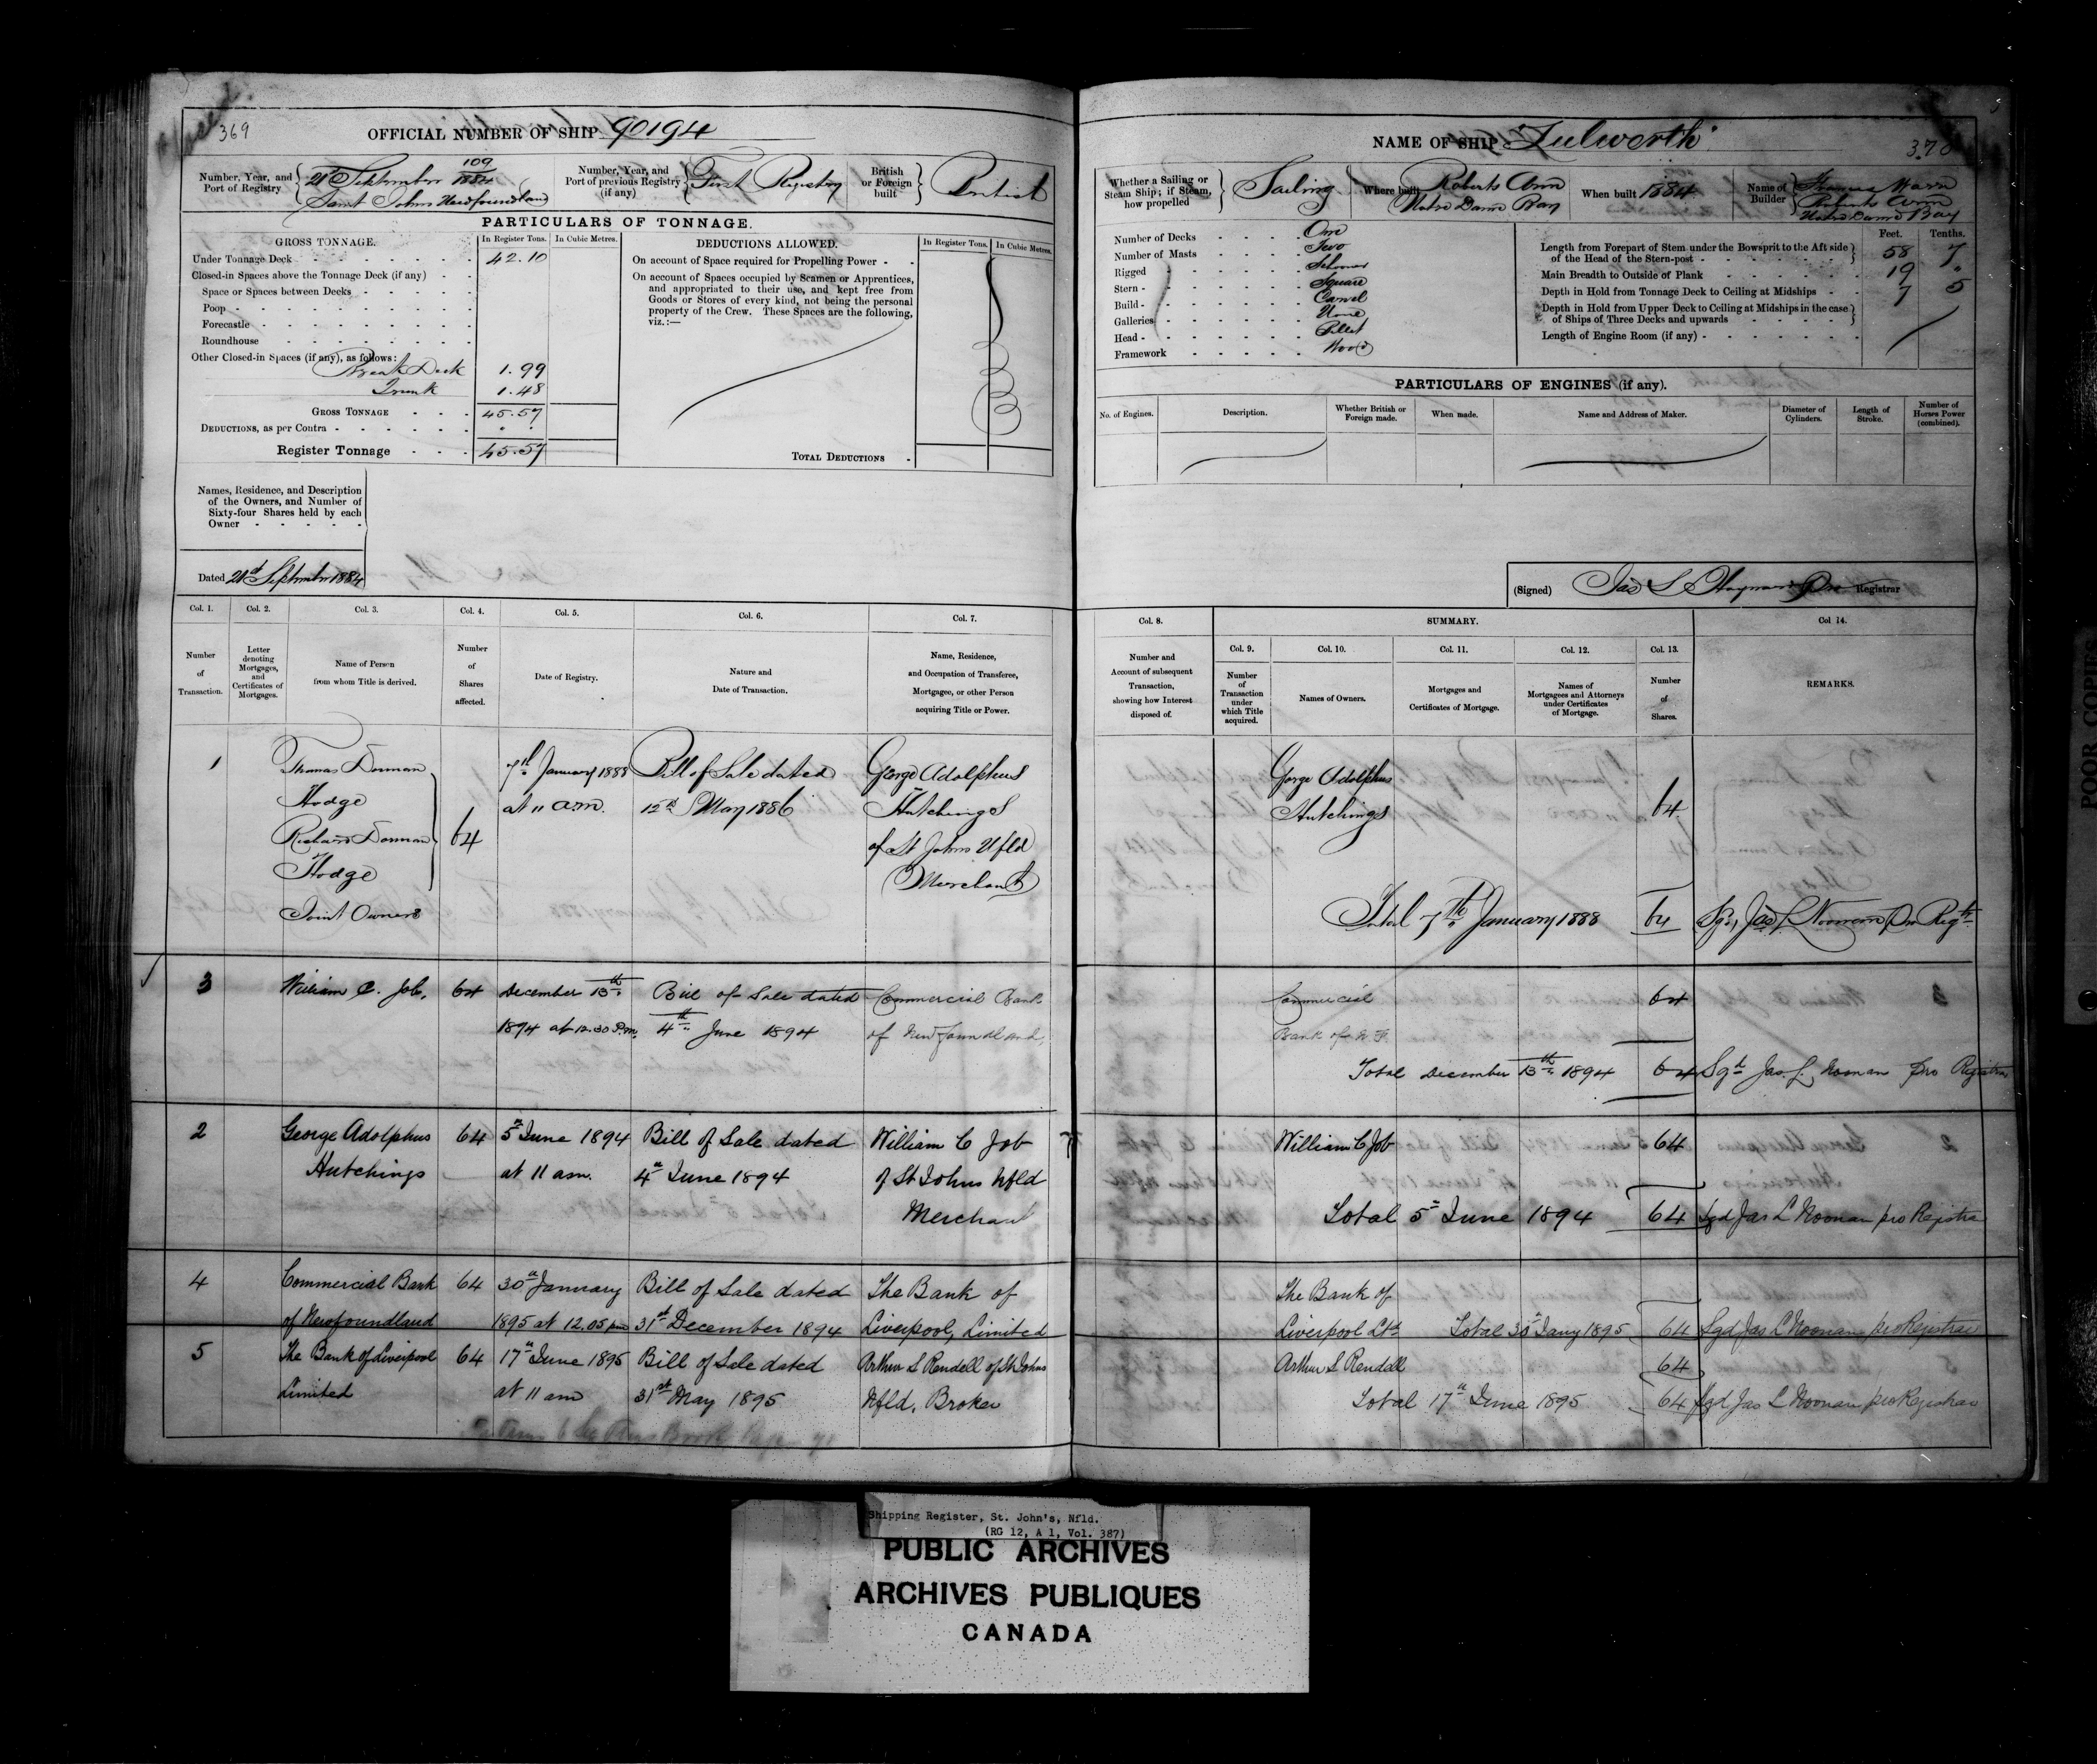 369
OFFICIAL NUMBER OF SHIP 90194
Number, Year, and Port of Registry
21st September 109/1884
Saint Johns Newfoundland
Number, Year, and Port of previous Registry (if any)
First Registry
British or Foreign built
British
PARTICULARS OF TONNAGE.
GROSS TONNAGE.
In Register Tons.
In Cubic Metres.
DEDUCTIONS ALLOWED.
In Register Tons.
In Cubic Metres.
Under Tonnage Deck 42.10
Closed-in Spaces above the Tonnage Deck (if any)
Space or Spaces between Decks
Poop
Forecastle
Roundhouse
Other Closed-in Spaces (if any), as follows:
Break Deck 1.99
Trunk 1.48
GROSS TONNAGE 45.57
DEDUCTIONS, as per Contra
Register Tonnage 45.57
On account of Space required for Propelling Power
On account of Spaces occupied by Seamen or Apprentices,
and appropriated to their use, and kept free from
Goods or Stores of every kind, not being the personal
property of the Crew. These Spaces are the following,
viz.:—
TOTAL DEDUCTIONS
Names, Residence, and Description
of the Owners, and Number of
Sixty-four Shares held by each
Owner
Dated 21st September 1884
NAME OF SHIP "Lulworth"
370
Whether a Sailing or Steam Ship; if Steam, how propelled
Sailing
Where built
Roberts Arm
Notre Dame Bay
When built 1884
Name of Builder
Thomas Warr
Roberts Arm
Notre Dame Bay
Number of Decks One
Number of Masts Two
Rigged Schooner
Stern Square
Build Carvel
Galleries None
Head Billet
Framework Wood
Feet. Tenths.
Length from Forepart of Stem under the Bowsprit to the Aft side
of the Head of the Stern-post 58 7
Main Breadth to Outside of Plank 19 "
Depth in Hold from Tonnage Deck to Ceiling at Midships 7 5
Depth in Hold from Upper Deck to Ceiling at Midships in the case
of Ships of Three Decks and upwards
Length of Engine Room (if any)
PARTICULARS OF ENGINES (if any).
No. of Engines.
Description.
Whether British or Foreign made.
When made.
Name and Address of Maker.
Diameter of Cylinders.
Length of Stroke.
Number of Horses Power (combined).
(Signed) Jas L Pro Registrar
Col. 1.
Col. 2.
Col. 3.
Col. 4.
Col. 5.
Col. 6.
Col. 7.
Number of Transaction.
Letter denoting Mortgages, and Certificates of Mortgages.
Name of Person from whom Title is derived.
Number of Shares affected.
Date of Registry.
Nature and Date of Transaction.
Name, Residence, and Occupation of Transferee, Mortgagee, or other Person acquiring Title or Power.
Col. 8.
SUMMARY.
Col 14.
Number and Account of subsequent Transaction, showing how Interest disposed of.
Col. 9.
Col. 10.
Col. 11.
Col. 12.
Col. 13.
Number of Transaction under which Title acquired.
Names of Owners.
Mortgages and Certificates of Mortgage.
Names of Mortgagees and Attorneys under Certificates of Mortgage.
Number of Shares.
REMARKS.
1 Thomas Dorman 7th January 1888 Bill of Sale dated George Adolphus
Hodge at 11 am. 12th May 1886 Hutchings
Richard Dorman 64 of St Johns Nfld
Hodge Merchant
Joint Owners
George Adolphus
Hutchings 64
Total 7th January 1888 64 Sgd, Jas L Noonan pro Regtr
3 William C. Job, 64 December 13th Bill of Sale dated Commercial Bank
1894 at 12.30 P.m. 4th June 1894 of Newfoundland,
Commercial 64
Bank of N F.
Total December 13th 1894 64 Sgd Jas. L. Noonan Pro Registrar
2 George Adolphus 64 5th June 1894 Bill of Sale dated William C Job
Hutchings at 11 am. 4th June 1894 of St Johns Nfld
Merchant
William C Job 64
Total 5th June 1894 64 Sgd Jas L Noonan pro Registrar
4 Commercial Bank 64 30th January Bill of Sale dated The Bank of
of Newfoundland 1895 at 12.05 pm 31st December 1894 Liverpool, Limited
The Bank of
Liverpool Ltd Total 30th Jany 1895 64 Sgd Jas L Noonan pro Registrar
5 The Bank of Liverpool 64 17th June 1895 Bill of Sale dated Arthur S Rendell of St Johns
Limited at 11 am 31st May 1895 Nfld, Broker
Arthur S Rendell 64
Total 17th June 1895 64 Sgd Jas L Noonan pro Registrar
POOR COPIE
Shipping Register, St. John's, Nfld.
(RG 12, A 1, Vol. 387)
PUBLIC ARCHIVES
ARCHIVES PUBLIQUES
CANADA